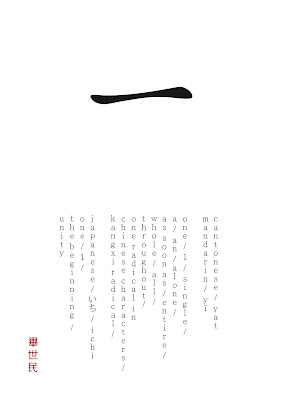 一
cantonese/yat
mandarin/yī
one/1/single/
a/an/alone/
as soon as/entire/
whole/all/
throughout/
one radical in
chinese characters/
kangxi radical/
japanese/いち/ichi
one/1/
the beginning/
unity
畢世民